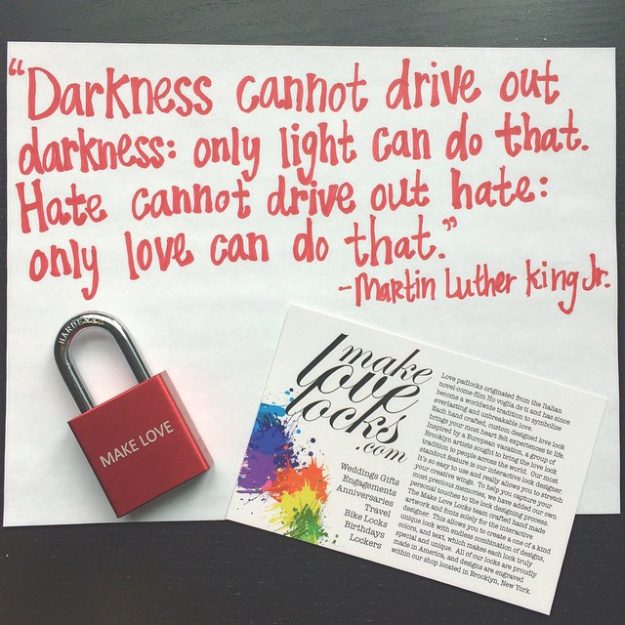 “Darkness cannot drive out
darkness: only light can do that.
Hate cannot drive out hate:
only love can do that.”
-Martin Luther King Jr.
HARDENED
MAKE LOVE
make
love
locks
.com
Weddings Gifts
Engagements
Anniversaries
Travel
Bike Locks
Birthdays
Lockers
Love padlocks originated from the Italian
novel-come-film Ho voglia di te and has since
become a worldwide tradition to symbolize
everlasting and unbreakable love.
Each hand crafted, custom designed love lock
brings your most heart felt experiences to life.
Inspired by a European vacation, a group of
Brooklyn artists sought to bring the love lock
tradition to people across the world. Our most
standout feature is our interactive lock designer.
It's so easy to use and really allows you to stretch
your creative wings. To help you capture your
most precious memories, we have added our own
personal touches to the lock designing process.
The Make Love Locks team crafted hand made
artwork and fonts solely for the interactive
designer. This allows you to create a one of a kind
unique lock with endless combination of designs,
colors, and text, which makes each lock truly
special and unique. All of our locks are proudly
made in America, and designs are engraved
within our shop located in Brooklyn, New York.